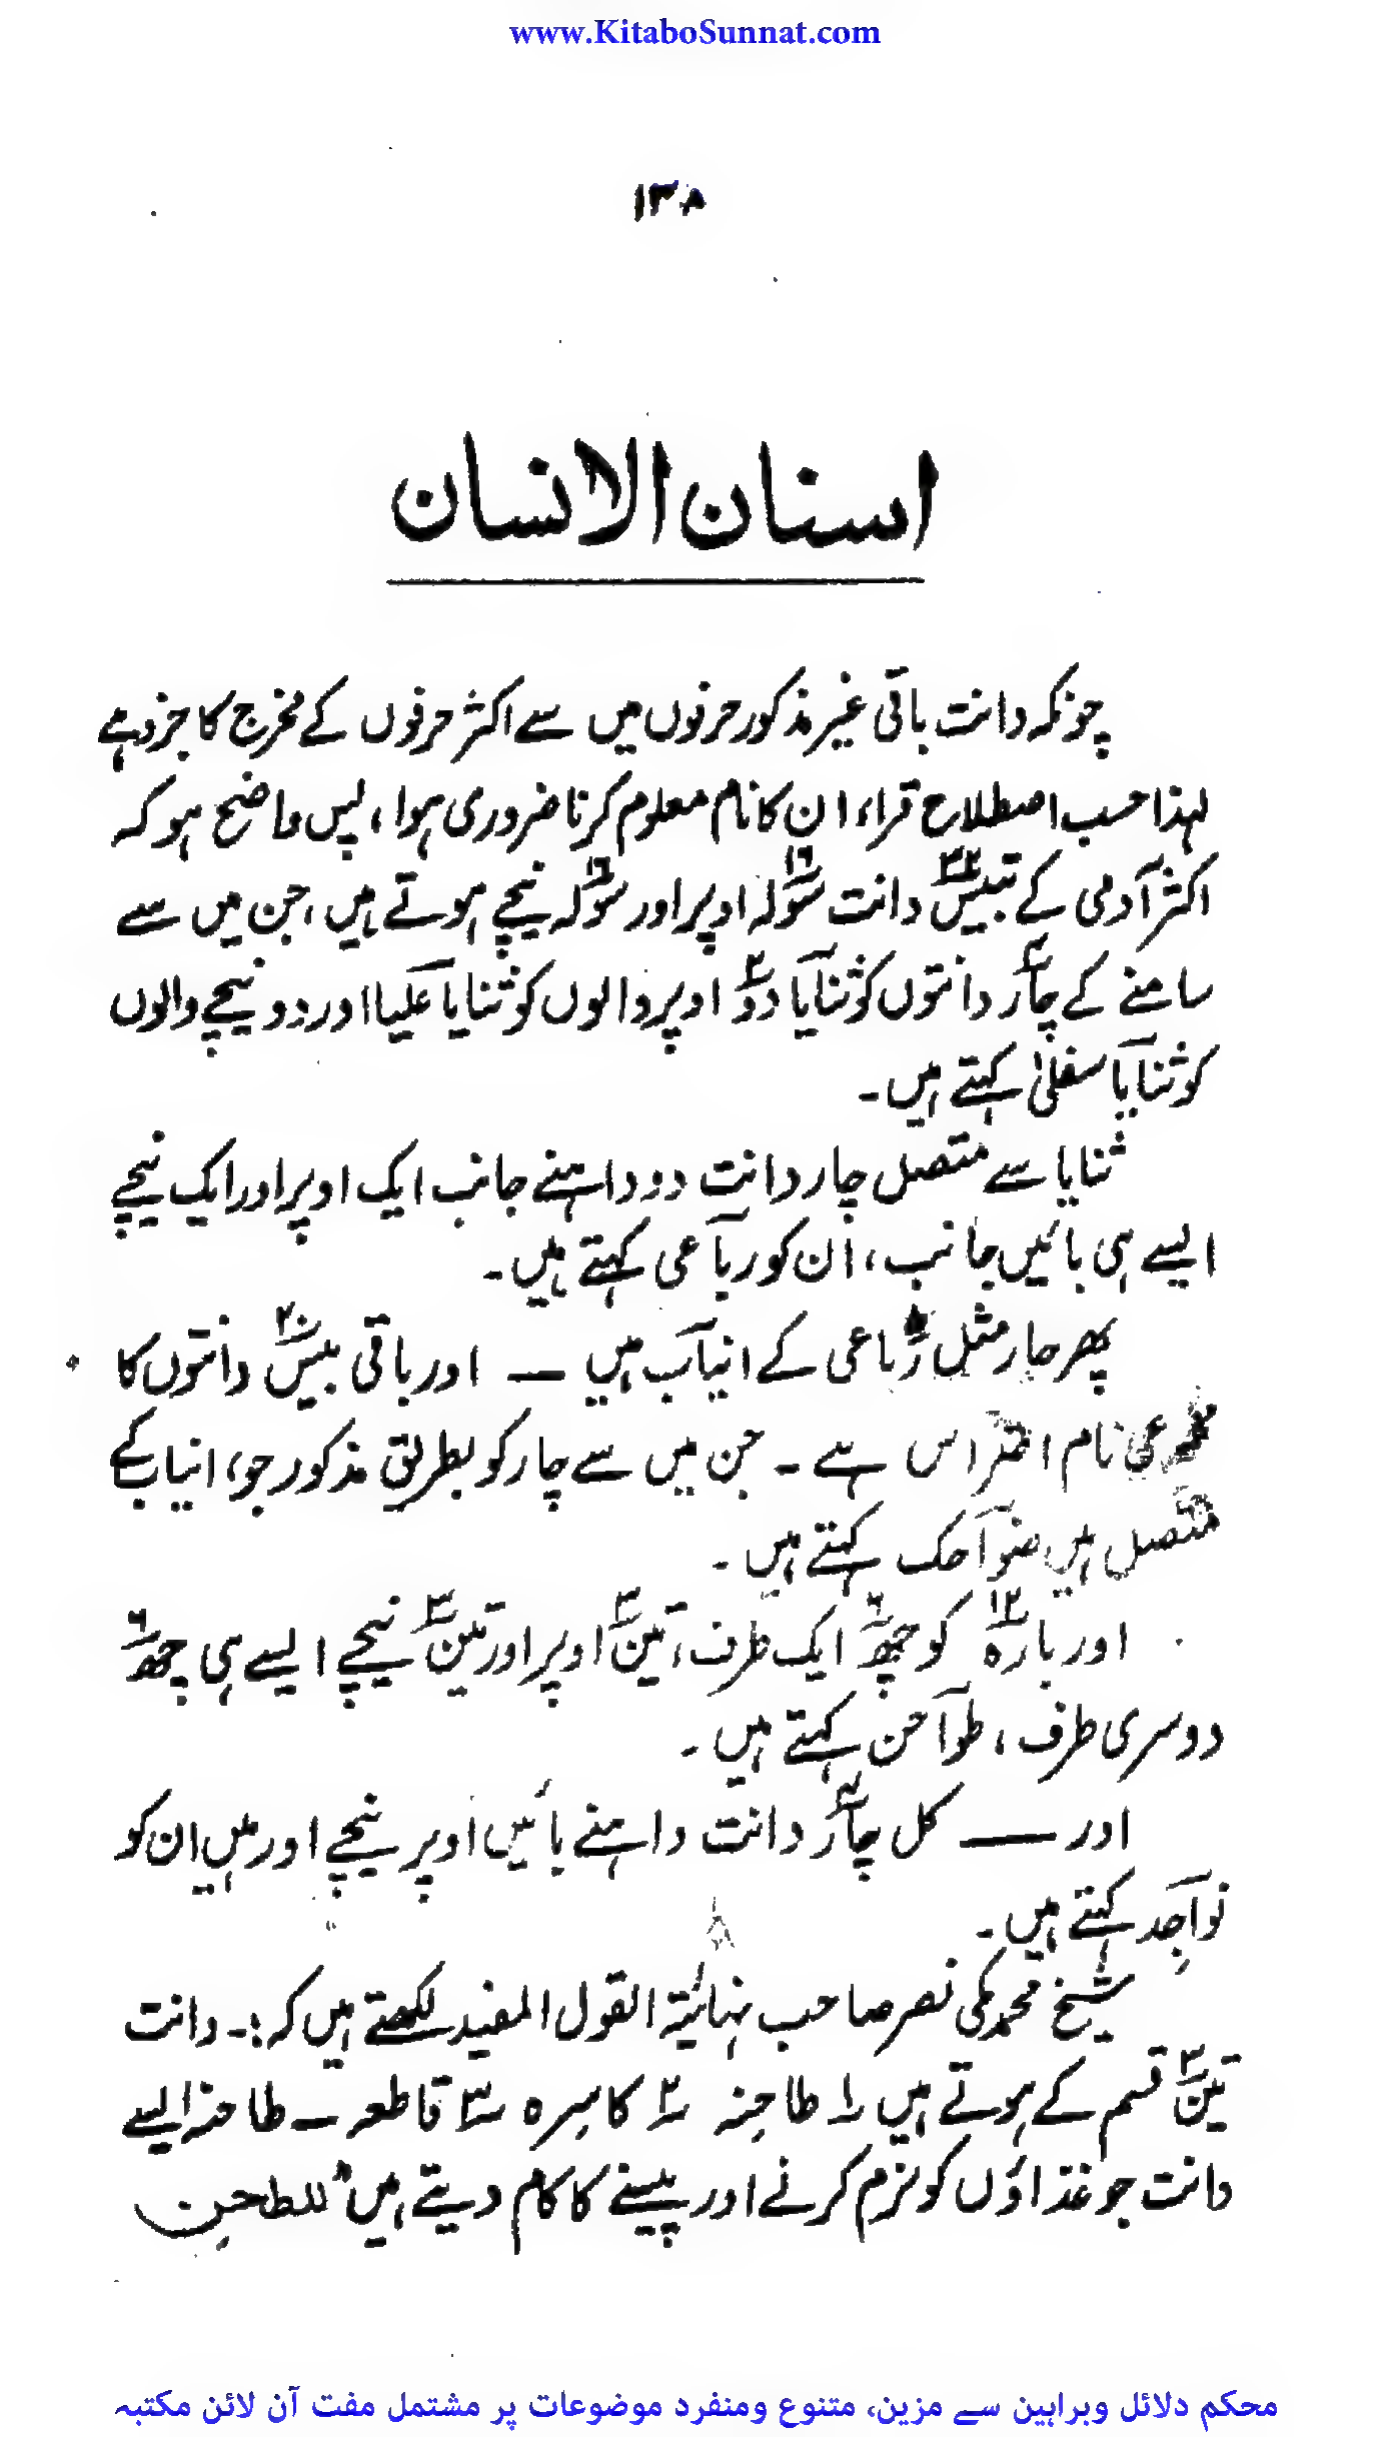 www.KitaboSunnat.com
۱۳۸
اسنان الانسان
چونکہ دانت باقی غیر مذکور حرفوں میں سے اکثر حرفوں کے مخرج کا جزو ہے
لہذا حسب اصطلاح قراء ان کا نام معلوم کرنا ضروری ہوا، پس واضح ہو کہ
اکثر آدمی کے بتیس۳۲ دانت سولہ۱۶ اوپر اور سولہ۱۶ نیچے ہوتے ہیں، جن میں سے
سامنے کے چار۴ دانتوں کو ثنایا دو۲ اوپر والوں کو ثنایا علیا اور دو نیچے والوں
کو ثنایا سفلیٰ کہتے ہیں۔
ثنایا سے متصل چار دانت دو داہنے جانب ایک اوپر اور ایک نیچے
ایسے ہی بائیں جانب، ان کو رباعی کہتے ہیں۔
پھر چار مثل رباعی کے انیاب ہیں — اور باقی بیس۲۰ دانتوں کا
نام اضراس ہے ۔ جن میں سے چار کو بطریق مذکور جو، انیاب کے
متصل ہیں ضواحک کہتے ہیں ۔
اور بارہ۱۲ کو چھ۶ ایک طرف، تین۳ اوپر اور تین۳ نیچے ایسے ہی چھ۶
دوسری طرف، طواحن کہتے ہیں ۔
اور — کل چار۴ دانت داہنے بائیں اوپر نیچے اور ہیں ان کو
نواجِذ کہتے ہیں ۔
شیخ محمد مکی نصر صاحب نہائیۃ القول المفید لکھتے ہیں کہ :۔ دانت
تین۳ قسم کے ہوتے ہیں ۱؍ طاحِنہ ۲؍ کاسِرہ ۳؍ قاطعہ — طاحنہ ایسے
دانت جو غذاؤں کو نرم کرنے اور پیسنے کا کام دیتے ہیں للطحن
محکم دلائل وبراہین سے مزین، متنوع ومنفرد موضوعات پر مشتمل مفت آن لائن مکتبہ